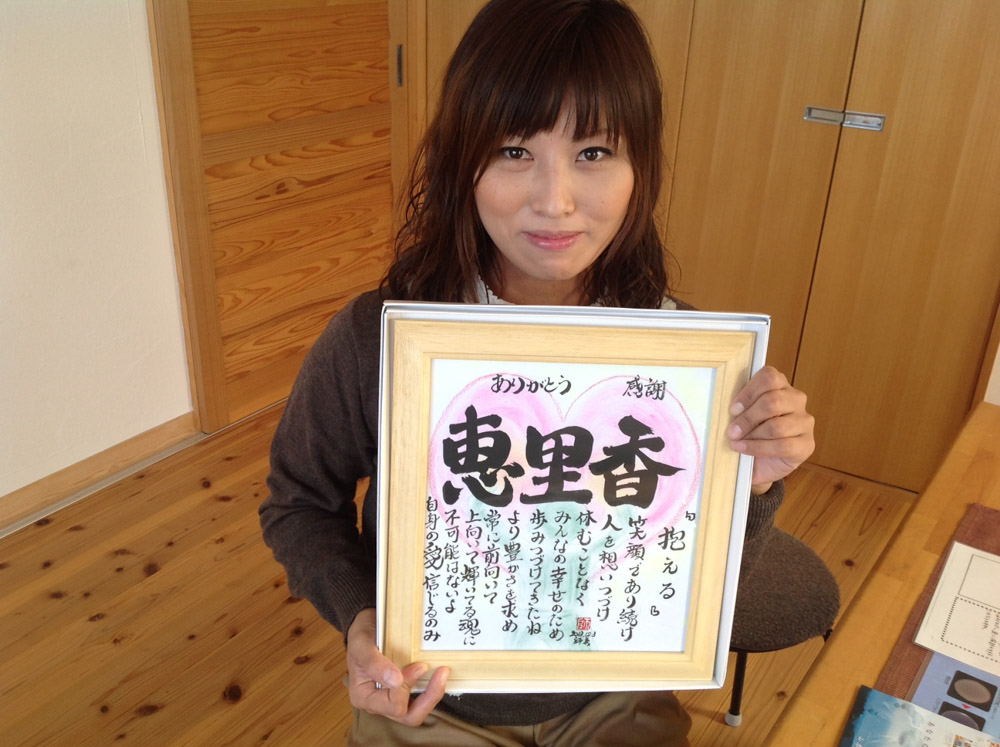 ありがとう 感謝
恵里香
『抱える』
笑顔であり続け
人を想いつづけ
休むことなく
みんなの幸せのため
歩みつづけてきたね
より豊かさを求め
常に前向いて
上向いて輝いてる魂に
不可能はないよ
自身の愛信じるのみ